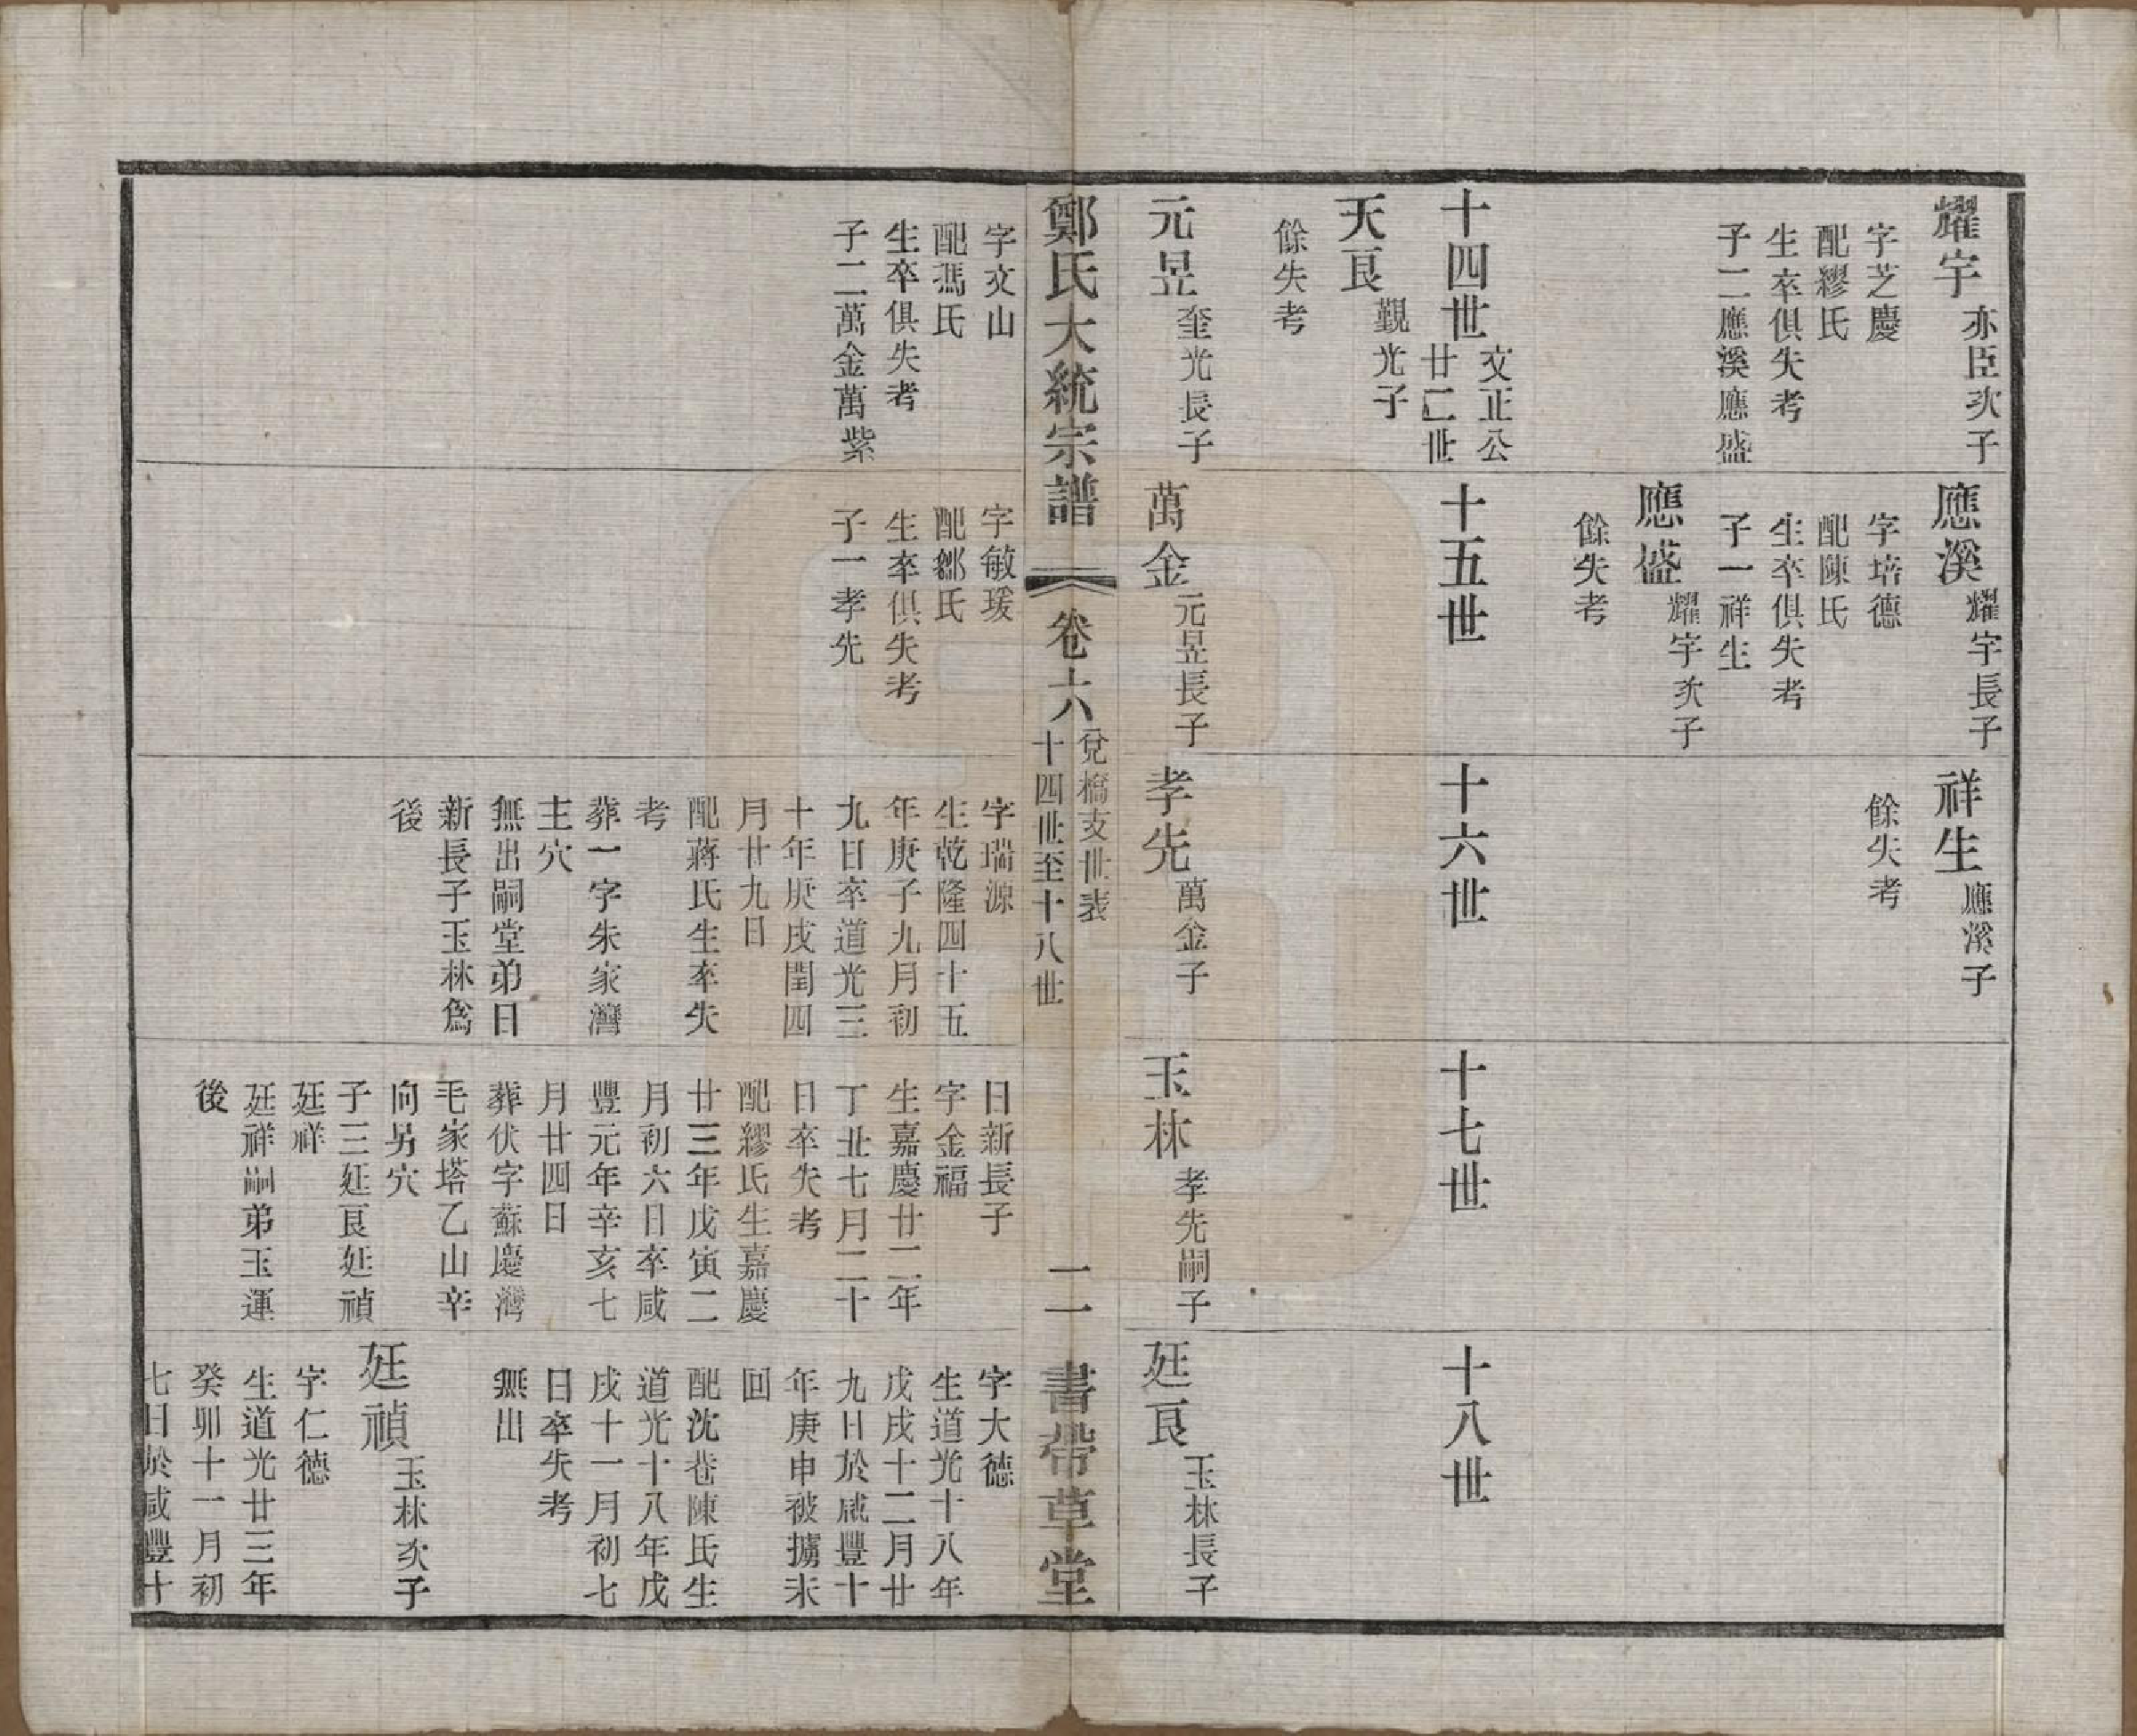 耀宇 亦臣次子
字芝慶
配繆氏
生卒俱失考
子二應溪應盛
應溪 耀宇長子
字培德
配陳氏
生卒俱失考
子一祥生
應盛 耀宇次子
餘失考
祥生 應溪子
餘失考
十四世 文正公廿二世
十五世
十六世
十七世
十八世
天良 觀光子
餘失考
元昱 奎光長子
萬金 元昱長子
孝先 萬金子
玉林 孝先嗣子
廷良 玉林長子
鄭氏大統宗譜 卷六 兌橋支世表 十四世至十八世 二 書帶草堂
字文山
配馮氏
生卒俱失考
子二萬金萬紫
字敏瑗
配鄒氏
生卒俱失考
子一孝先
字瑞源
生乾隆四十五
年庚子九月初
九日卒道光三
十年庚戌閏四
月廿九日
配蔣氏生卒失
考
葬一字朱家灣
主穴
無出嗣堂弟日
新長子玉林為
後
日新長子
字金福
生嘉慶廿二年
丁丑七月二十
日卒失考
配繆氏生嘉慶
廿三年戊寅二
月初六日卒咸
豐元年辛亥七
月廿四日
葬伏字蘇慶灣
毛家塔乙山辛
向另穴
子三廷良廷禎
廷祥
廷祥嗣弟玉運
後
字大德
生道光十八年
戊戌十二月廿
九日於咸豐十
年庚申被擄未
回
配沈巷陳氏生
道光十八年戊
戌十一月初七
日卒失考
無出
廷禎 玉林次子
字仁德
生道光廿三年
癸卯十一月初
七日於咸豐十